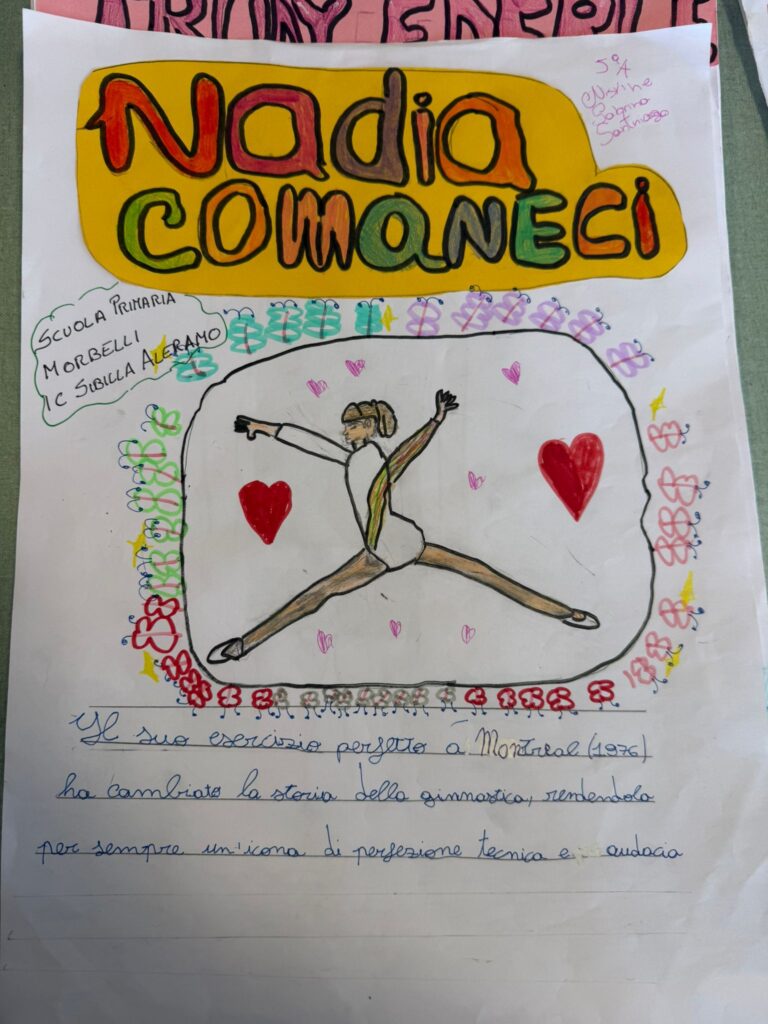 Nadia
COMANECI
5ªA
Sabrina
Santiago
SCUOLA PRIMARIA
MORBELLI
IC SIBILLA ALERAMO
Il suo esercizio perfetto á Montreal (1976)
ha cambiato la storia della ginnastica, rendendola
per sempre un'icona di perfezione tecnica e audacia